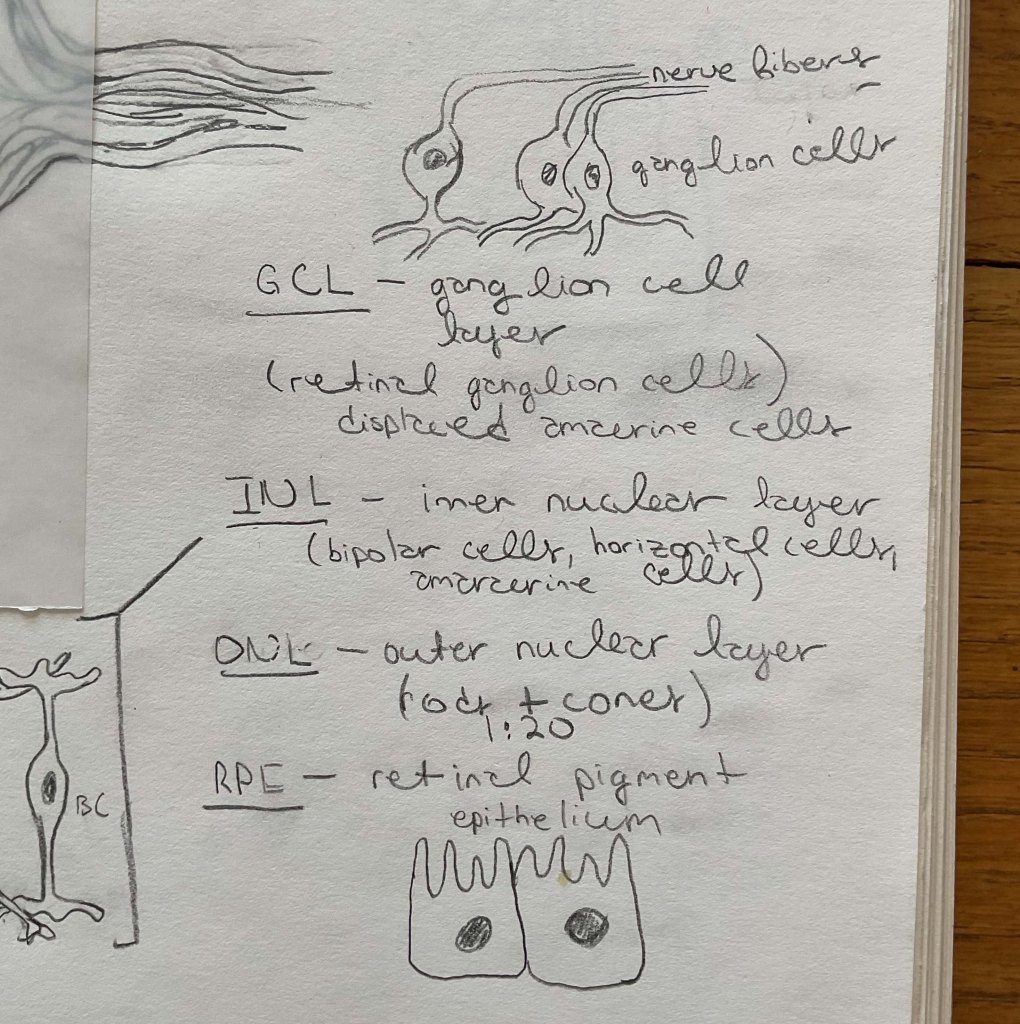 nerve fibers
ganglion cells
GCL - ganglion cell
layer
(retinal ganglion cells)
displaced amacrine cells
INL - inner nuclear layer
(bipolar cells, horizontal cells,
amaracrine cells)
ONL - outer nuclear layer
(rods + cones)
1:20
RPE - retinal pigment
epithelium
BC